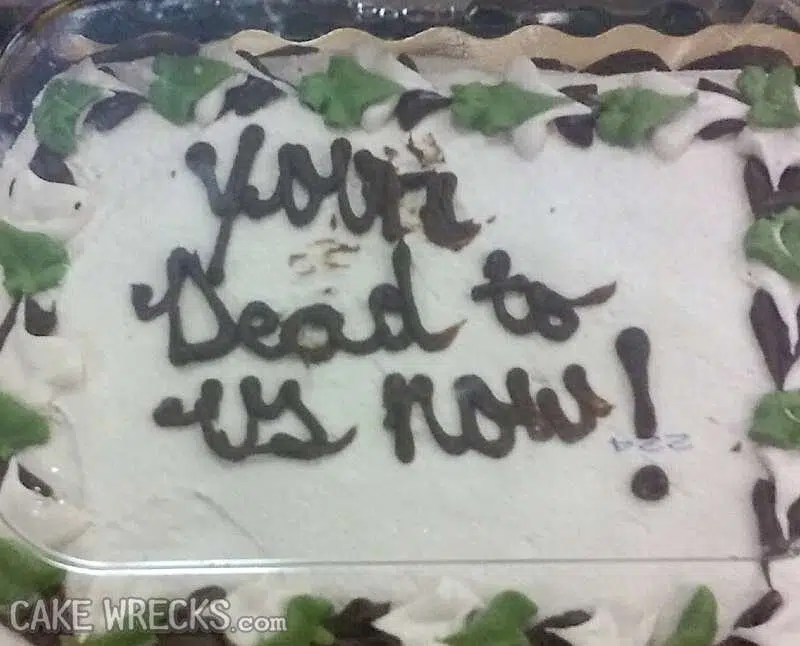 Your
Dead to
us now!
224
CAKE WRECKS.com